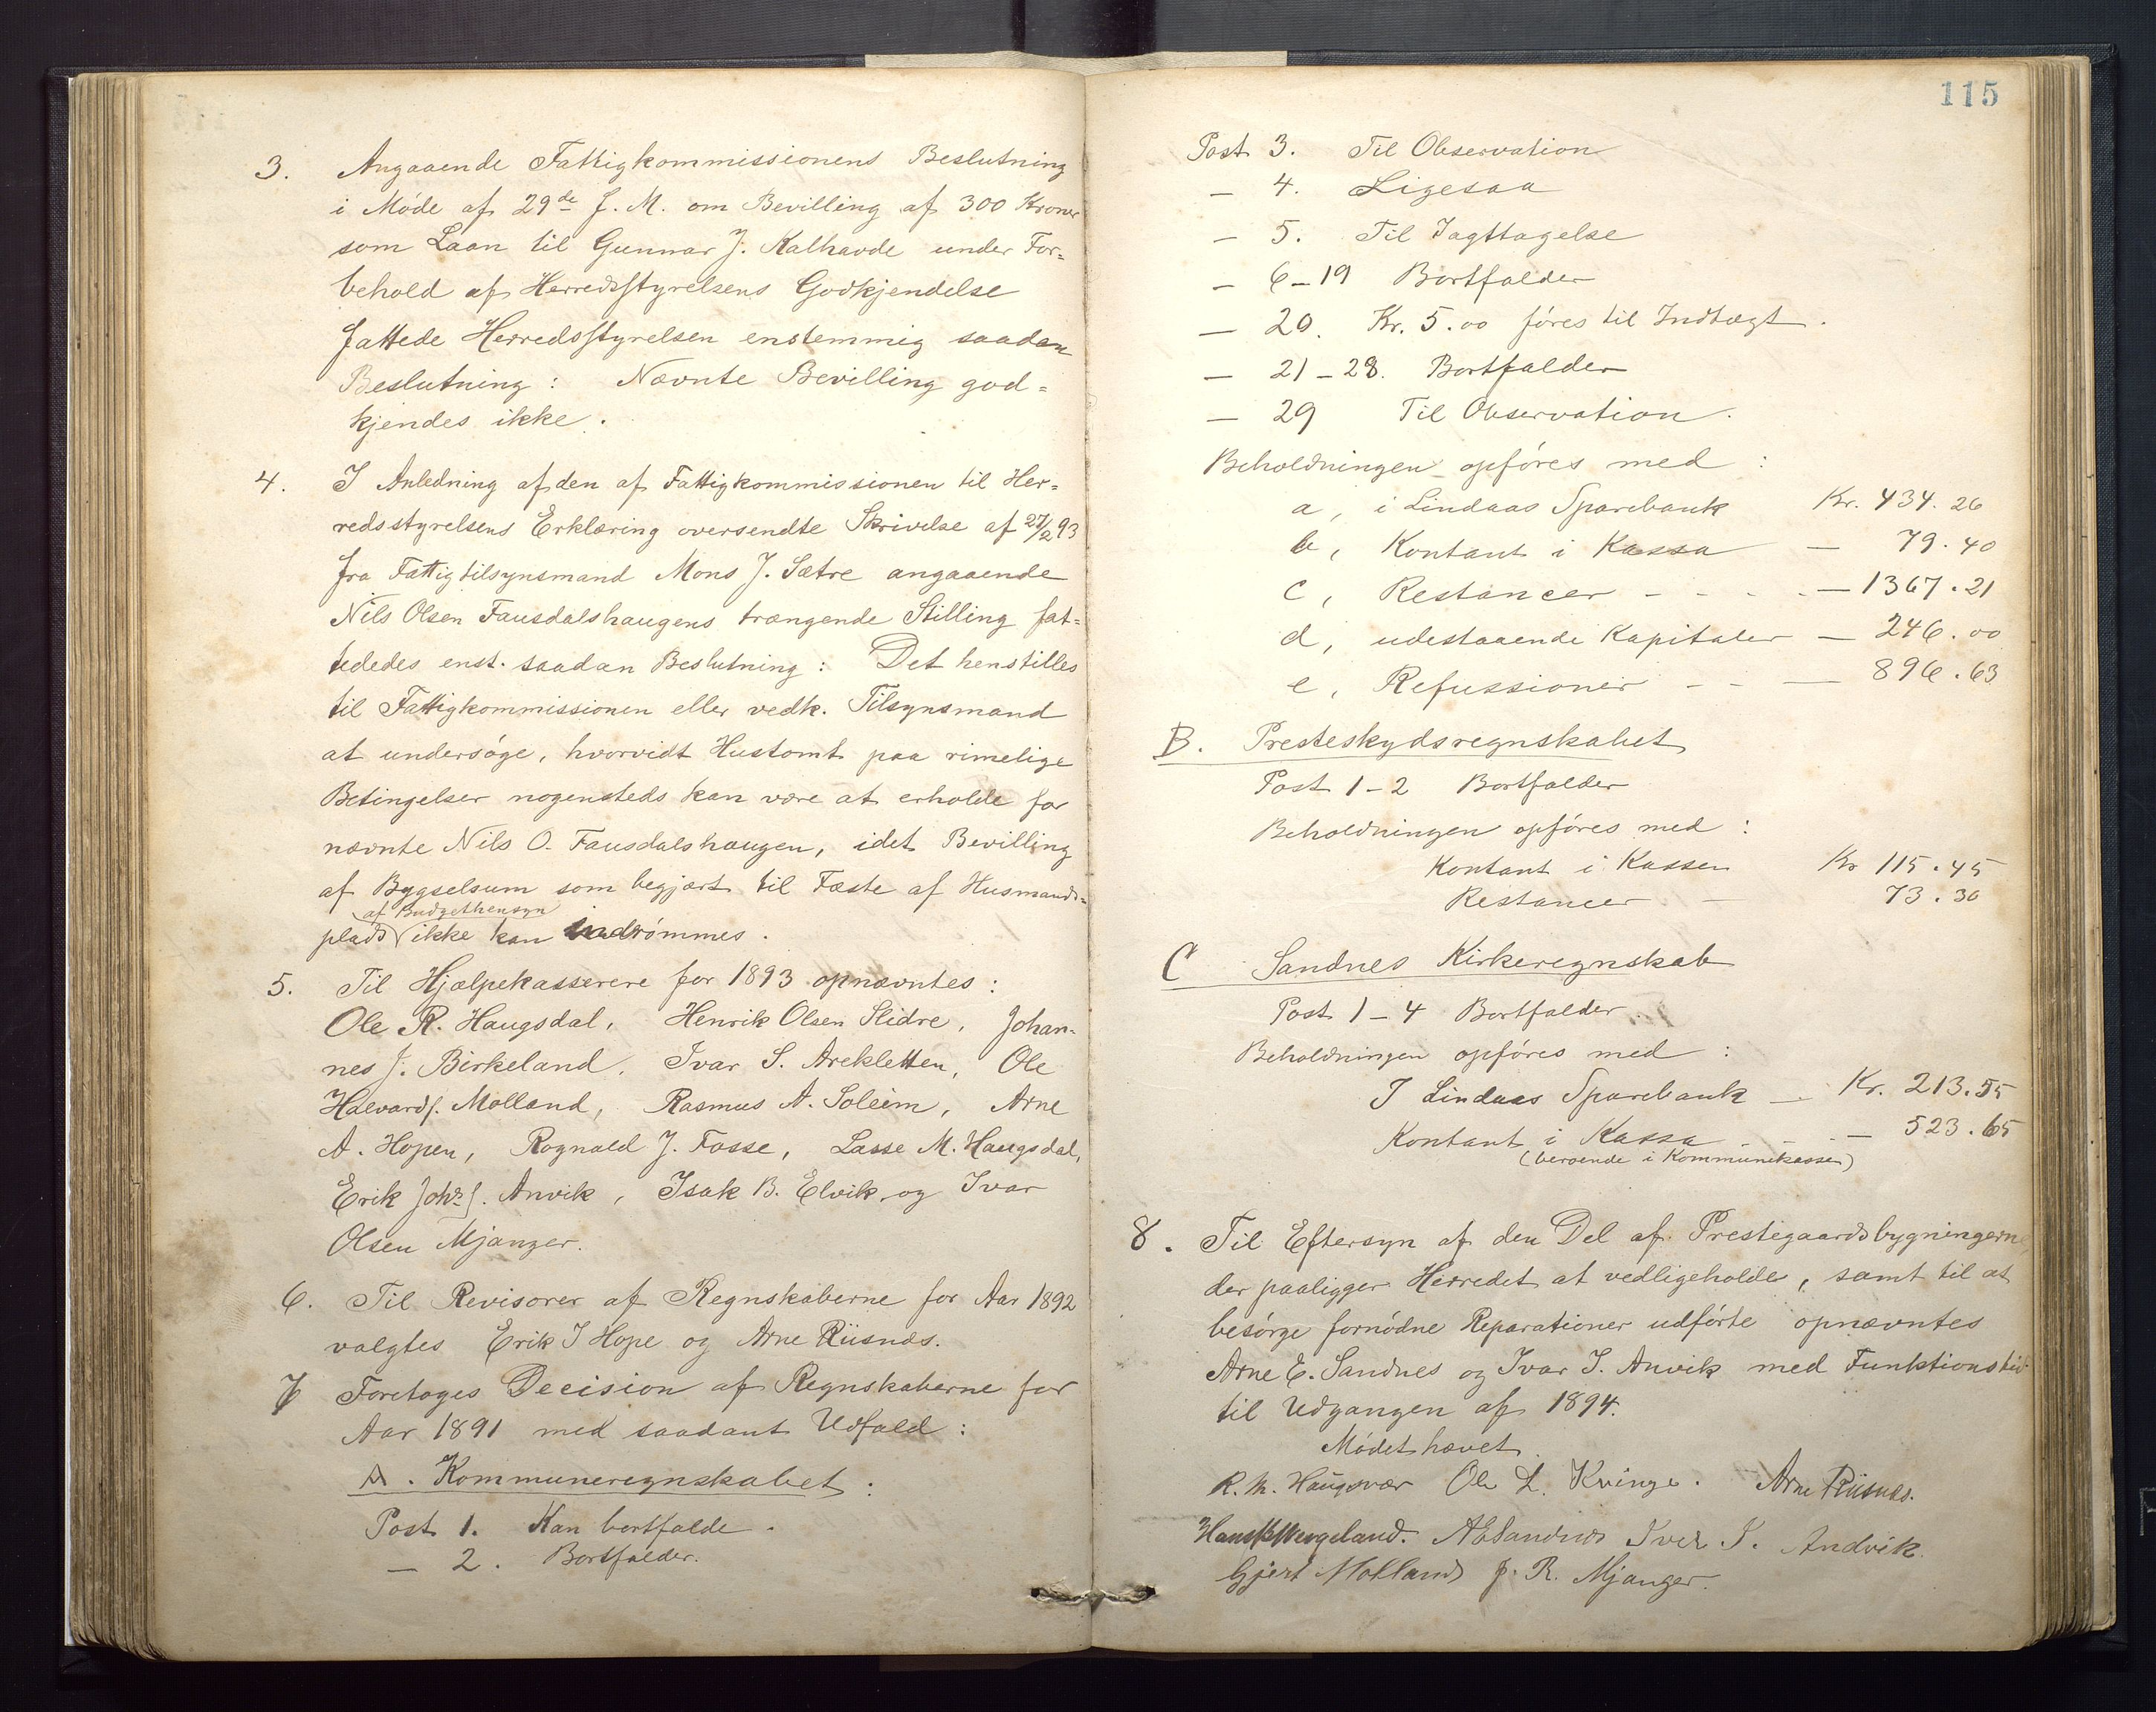 3. Angaaende Fattigkommissionens Beslutning
i Møde af 29de f. M. om Bevilling af 300 Kroner
som Laan til Gunnar J. Kalhavde under For=
behold af Herredsstyrelsens Godkjendelse
fattede Herredsstyrelsen enstemmig saadan
Beslutning: Nævnte Bevilling god=
kjendes ikke.
4. I Anledning af den af Fattigkommissionen til Her=
redsstyrelsens Erklæring oversendte Skrivelse af 27/2 93
fra Fattigtilsynsmand Mons J. Sætre angaaende
Nils Olsen Fausdalshaugens trængende Stilling fat=
tededes enst. saadan Beslutning: Det henstilles
til Fattigkommissionen eller vedk. Tilsynsmand
at undersøge, hvorvidt Hustomt paa rimelige
Betingelser nogensteds kan være at erholde for
nævnte Nils O. Fausdalshaugen, idet Bevilling
af Bygselsum som begjært til Fæste af Husmands=
af Budgethensyn
plads ikke kan indrømmes.
5. Til Hjælpekasserere for 1893 opnævntes:
Ole R. Haugsdal, Henrik Olsen Slidre, Johan-
nes J. Birkeland, Ivar S. Arekletten, Ole
Halvards. Molland, Rasmus A. Soleim, Arne
A. Hopen, Rognald J. Fosse, Lasse M. Haugsdal,
Erik Johs. Anvik, Isak B. Elvik og Ivar
Olsen Mjanger.
6. Til Revisorer af Regnskaberne for Aar 1892
valgtes Erik I Hope og Arne Riisnæs.
7 Foretoges Decision af Regnskaberne for
Aar 1891 med saadant Udfald:
A. Kommuneregnskabet:
Post 1. Kan bortfalde.
— 2. Bortfalder.
115
Post 3. Til Observation
— 4. Ligesaa
— 5. Til Iagttagelse
— 6-19 Bortfalder
— 20. Kr. 5.00 føres til Indtægt.
— 21-28. Bortfalder
— 29 Til Observation.
Beholdningen opføres med:
a, i Lindaas Sparebank Kr. 434.26
b, Kontant i Kassa — 79.40
c, Restancer - - - - — 1367.21
d, udestaaende Kapitaler — 246.00
e, Refusioner - - — 896.63
B. Presteskydsregnskabet
Post 1-2 Bortfalder
Beholdningen opføres med:
Kontant i Kassen Kr 115.45
Restancer — 73.30
C Sandnes Kirkeregnskab
Post 1-4 Bortfalder.
Beholdningen opføres med:
I Lindaas Sparebank — Kr. 213.55
Kontant i Kassa - - - — 523.65
(beroende i Kommunekassen)
8. Til Eftersyn af den Del af Prestegaardsbygningerne,
der paaligger Herredet at vedligeholde, samt til at
besørge fornødne Reparationer udførte opnævntes
Arne E. Sandnes og Ivar I. Anvik med Funktionstid
til Udgangen af 1894.
Mødet hævet.
R. M. Haugsvær Ole L. Kvinge. Arne Riisnæs.
Hans Wergeland. AESandnes Iver I. Andvik.
Gjert Molland J. R. Mjanger.